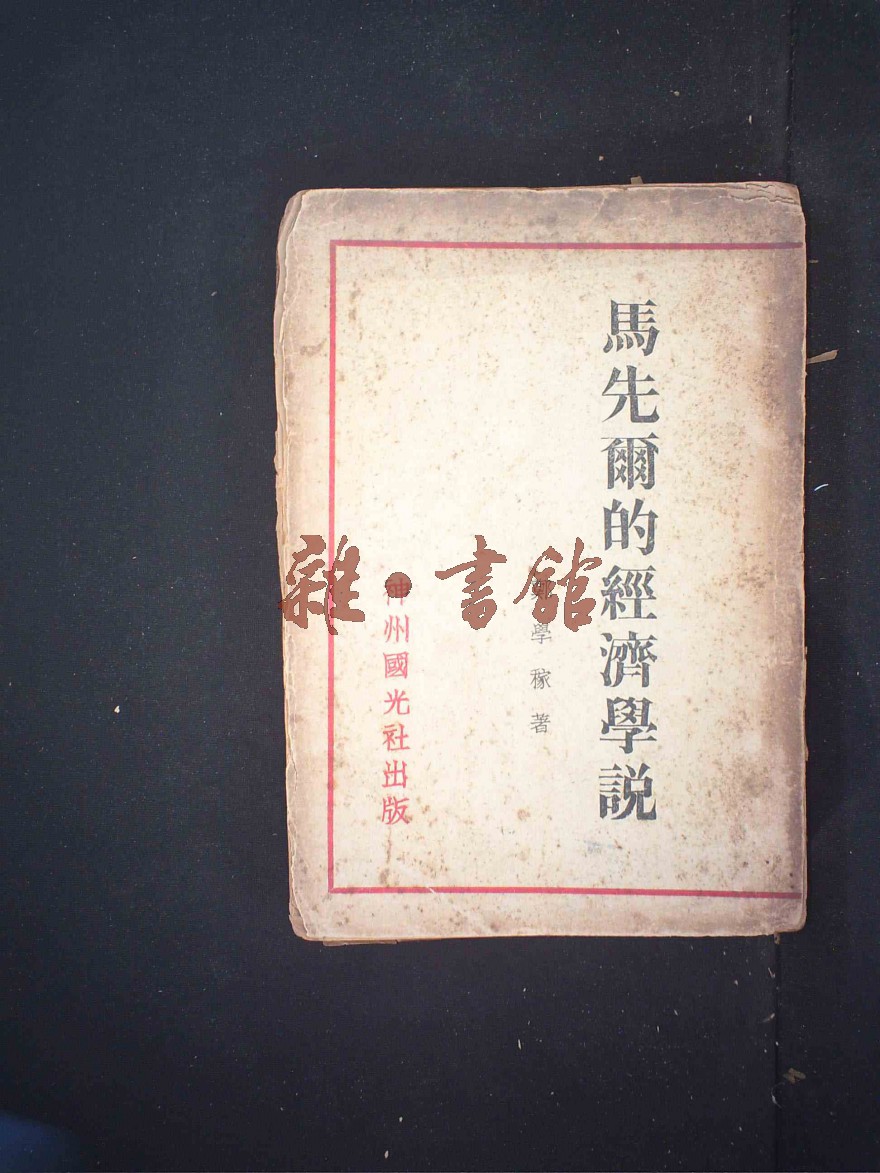 馬先爾的經濟學説
鄭學稼著
神州國光社出版
雜·書館